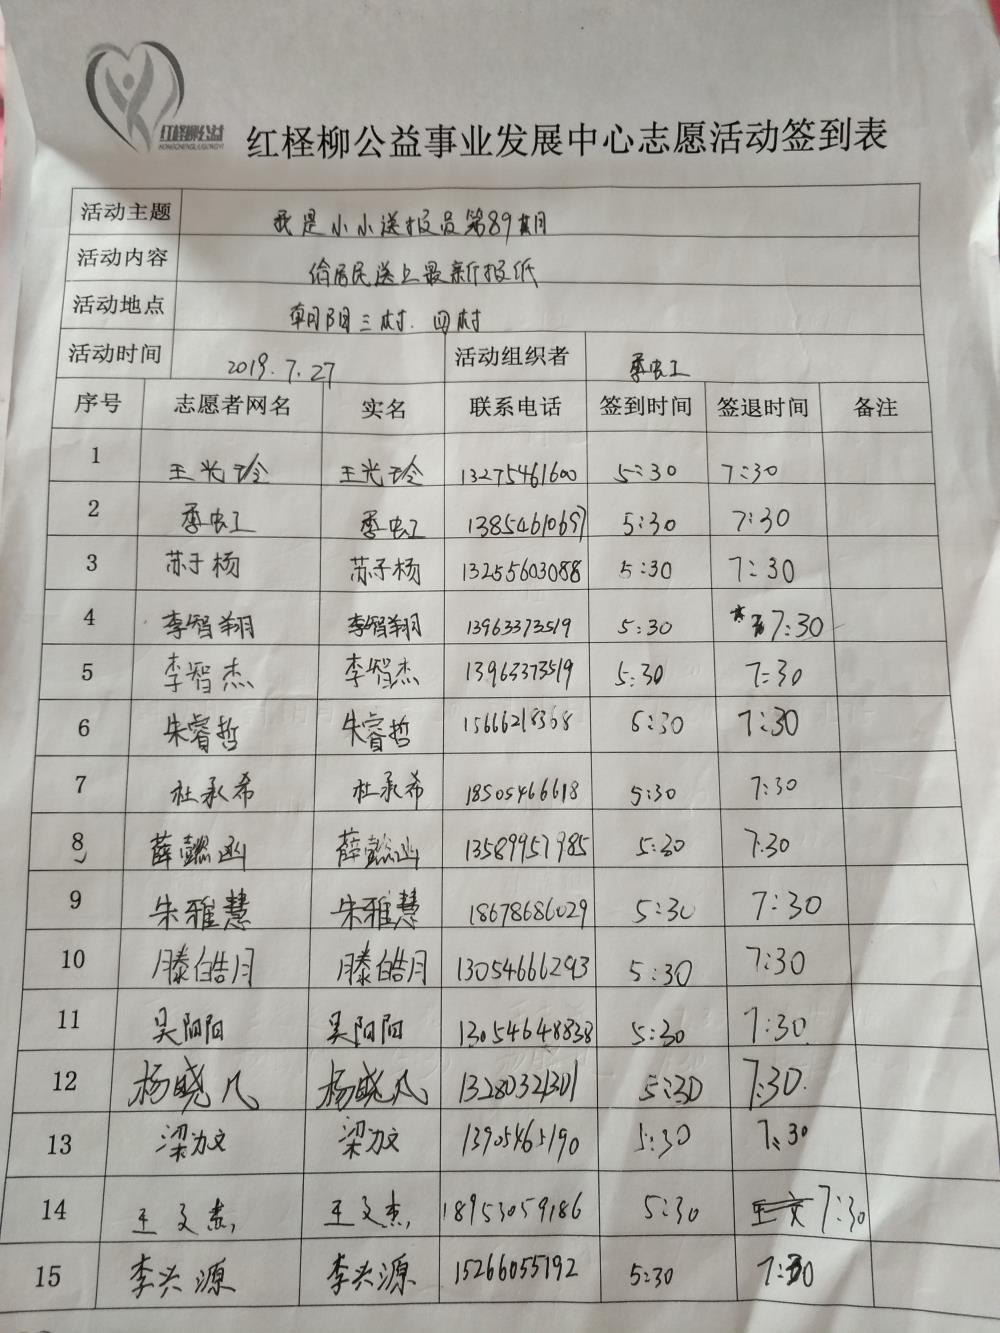 红柽柳公益
HONGCHENGLIUGONGYI
红柽柳公益事业发展中心志愿活动签到表
活动主题 我是小小送报员第89期
活动内容 给居民送上最新报纸
活动地点 朝阳三村.四村
活动时间 2019.7.27 活动组织者 季虹
序号 志愿者网名 实名 联系电话 签到时间 签退时间 备注
1 王光玲 王光玲 13275461600 5:30 7:30
2 季虹 季虹 13854610697 5:30 7:30
3 苏子杨 苏子杨 13255603088 5:30 7:30
4 李智翔 李智翔 13963373519 5:30 7:30
5 李智杰 李智杰 13963373519 5:30 7:30
6 朱睿哲 朱睿哲 15666218368 5:30 7:30
7 杜承希 杜承希 18505466618 5:30 7:30
8 薛懿函 薛懿函 13589957985 5:30 7:30
9 朱雅慧 朱雅慧 18678686029 5:30 7:30
10 滕皓月 滕皓月 13054666293 5:30 7:30
11 吴阳阳 吴阳阳 13054648838 5:30 7:30
12 杨晓凡 杨晓凡 13280321301 5:30 7:30.
13 梁力文 梁力文 13905465190 5:30 7:30
14 王文杰 王文杰 18953059186 5:30 7:30
15 李兴源 李兴源 15266055192 5:30 7:30